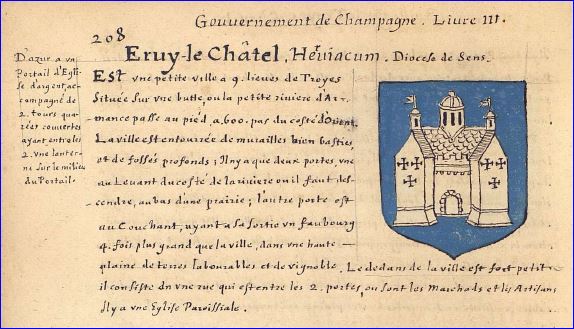 Gouuernement de Champagne. Liure III.
208
Eruy-le-Châtel, Heruiacum. Diocese de Sens.
D'azur a vn
Portail d'Egli-
se d'argent, ac-
compagné de
2. tours quar-
rées couuertes
ayant entre les
2. vne lanter-
ne sur le milieu
du Portail.
Est vne petite ville a 9. lieues de Troyes
Située sur vne butte, ou la petite riuiere d'Ar-
mance passe au pié d'a, 600. pas du costé d'Orient.
La ville est entourée de murailles bien basties,
et de fossés profonds; Il n'y a que deux portes, vne
au Leuant du costé de la riuiere ou il faut des-
cendre, au bas d'une prairie; l'autre porte est
au Couchant, ayant a sa sortie vn faubourg
4. fois plus grand que la ville, dans vne haute
plaine de terres labourables et de vignoble. Le dedans de la ville est fort petit
il consiste en vne rue qui est entre les 2. portes, ou sont les Marchads et les Artisans
Il y a vne Eglise Paroissiale.